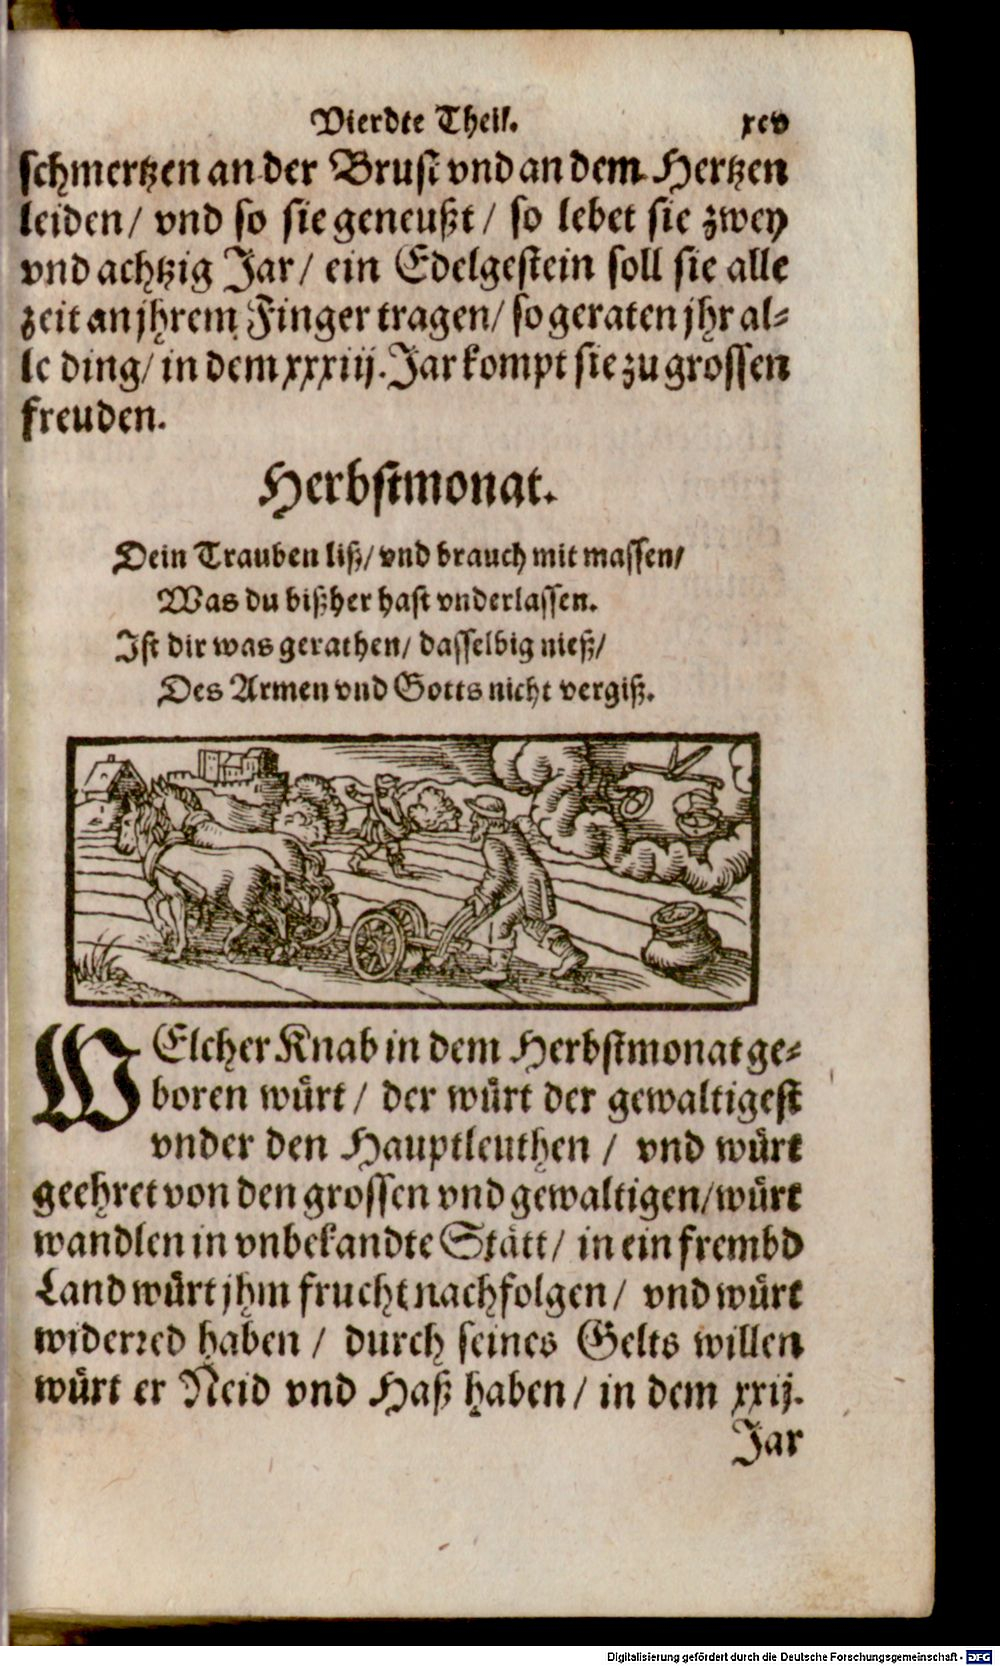 Vierdte Theil. xcv
schmertzen an der Brust vnd an dem Hertzen
leiden / vnd so sie geneußt / so lebet sie zwey
vnd achtzig Jar / ein Edelgestein soll sie alle
zeit an jhrem Finger tragen / so geraten jhr al-
le ding / in dem xxxiij. Jar kompt sie zu grossen
freuden.
Herbstmonat.
Dein Trauben liß / vnd brauch mit massen /
Was du bißher hast vnderlassen.
Ist dir was gerathen / dasselbig nieß /
Des Armen vnd Gotts nicht vergiß.
WElcher Knab in dem Herbstmonat ge-
boren wûrt / der wûrt der gewaltigest
vnder den Hauptleuthen / vnd wûrt
geehret von den grossen vnd gewaltigen / wûrt
wandlen in vnbekandte Stätt / in ein frembd
Land wûrt jhm frucht nachfolgen / vnd wûrt
widerred haben / durch seines Gelts willen
wûrt er Neid vnd Haß haben / in dem xxij.
Jar
Digitalisierung gefördert durch die Deutsche Forschungsgemeinschaft - DFG